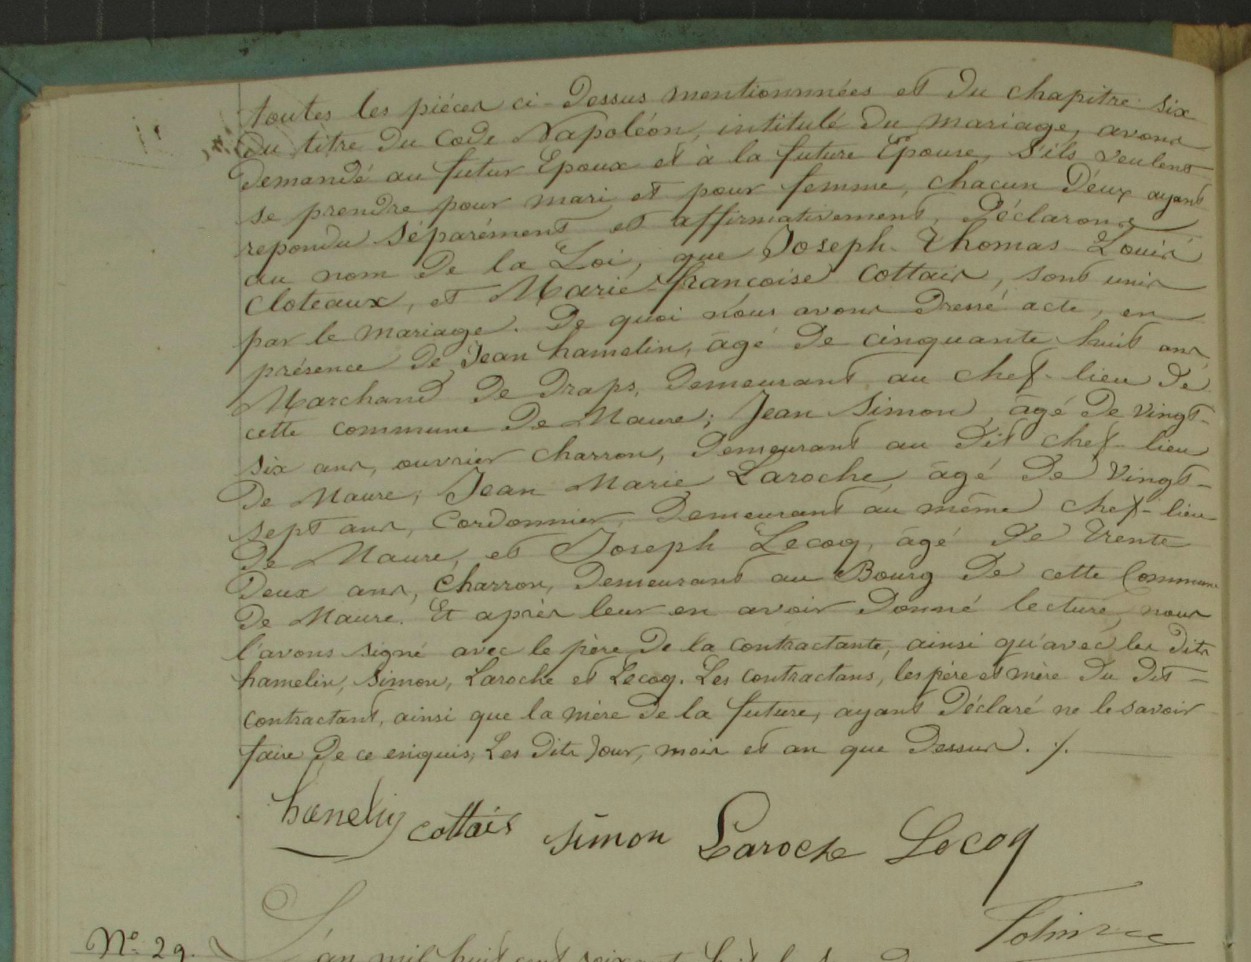 toutes les pièces ci-dessus mentionnnées et du chapitre six
du titre du Code Napoléon, intitulé du mariage, avons
demandé au futur Epoux et à la future Epouse, s'ils veulent
se prendre pour mari et pour femme, chacun d'eux ayant
repondu séparément et affirmativement, déclarons
au nom de la Loi, que Joseph-Thomas-Louis
Cloteaux, et Marie-françoise Cottais, sont unis
par le mariage. De quoi nous avons dressé acte, en
présence de Jean hamelin, âgé de cinquante huit ans,
Marchand de draps, demeurant au chef-lieu de
cette commune de Maure; Jean Simon, âgé de vingt-
six ans, ouvrier charron, demeurant au dit chef-lieu
de Maure; Jean Marie Laroche, âgé de vingt-
sept ans, Cordonnier, demeurant au même chef-lieu
de Maure, et Joseph Lecoq, âgé de trente
deux ans, charron, demeurant au Bourg de cette Commune
de Maure. Et après leur en avoir donné lecture, nous
l'avons signé avec le père de la contractante, ainsi qu'avec les dits
hamelin, Simon, Laroche et Lecoq. Les contractans, les père et mère du dit
contractant, ainsi que la mère de la future, ayant déclaré ne le savoir
faire de ce enquis, Les dits Jour, mois et an que dessus. ./.
hamelin cottais simon Laroche Lecoq
N° 29. L'an mil huit cent soixante huit le